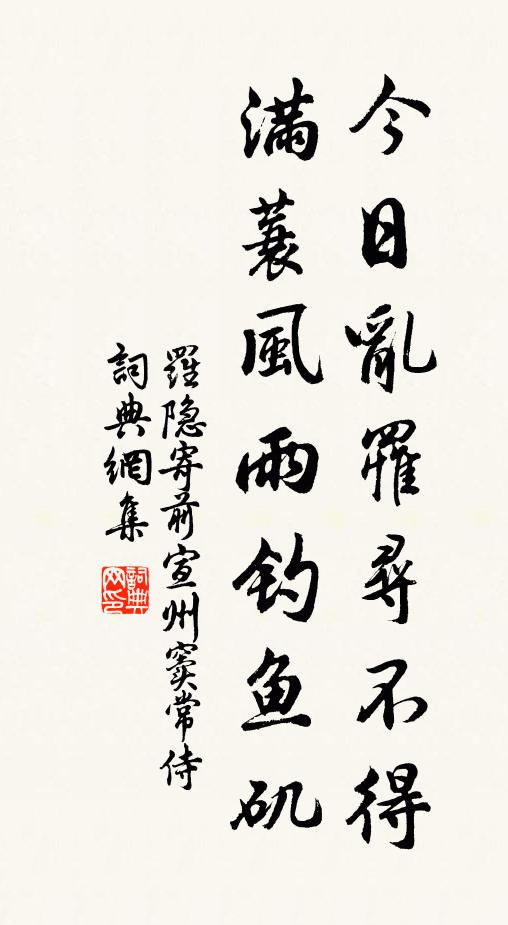 今日亂罹尋不得
滿蓑風雨钓鱼矶
羅隐寄前宣州窦常侍
詞典網集
詞典网印